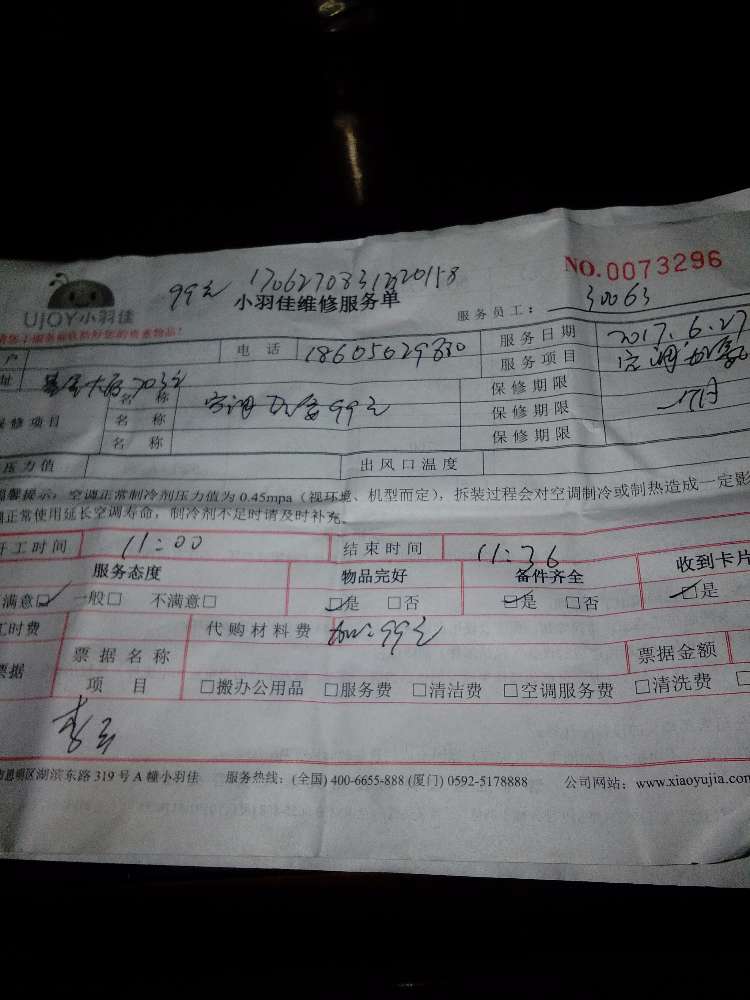 NO.0073296
99元 1706270831220158
UJOY小羽佳
小羽佳维修服务单
服务员工: 30063
户 电话 服务日期 2017.6.27
址 703 服务项目 空调加氨
保修项目 名称 空调 99元 保修期限
名称 保修期限 一个月
名称 保修期限
压力值 出风口温度
温馨提示,空调正常制冷剂压力值为 0.45mpa(视环境、机型而定),拆装过程会对空调制冷或制热造成一定影
正常使用延长空调寿命,制冷剂不足时请及时补充。
开工时间 11:00 结束时间 11:36
服务态度 物品完好 备件齐全 收到卡片
满意☑ 一般□ 不满意□ ☑是 □否 ☑是 □否 ☑是
工时费 代购材料费 99元
票据 票据名称 票据金额
项目 □搬办公用品 □服务费 □清洁费 □空调服务费 □清洗费 □
思明区湖滨东路 319 号 A 幢小羽佳 服务热线:(全国) 400-6655-888 (厦门) 0592-5178888 公司网站:www.xiaoyujia.com